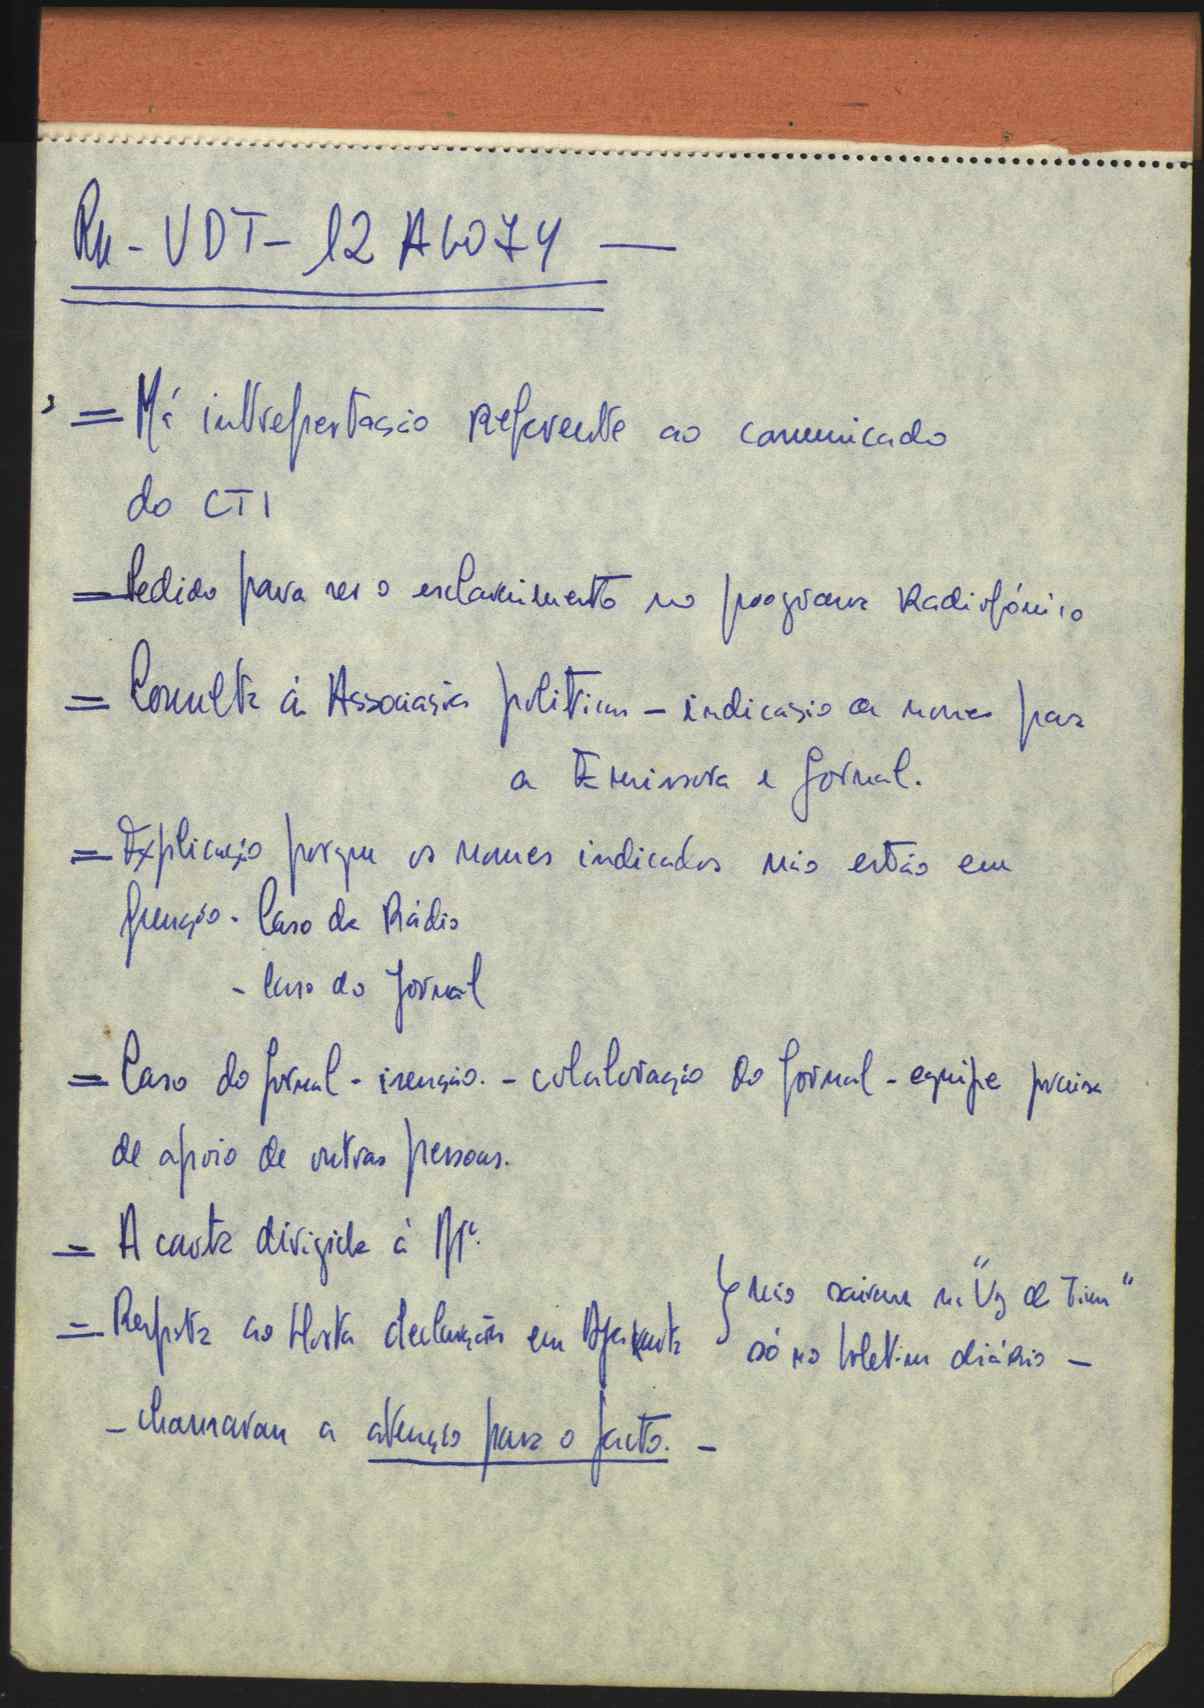 Ru - VDT - 12 AGO 74 —
= Má intrepertação referente ao comunicado
do CTI
= Pedido para ser o esclarecimento no programa Radiofónico
= Consulta às Associações politicas - indicação de nomes para
a Emissora e Jornal.
= Explicação porque os nomes indicados não estão em
função. Caso da Rádio
- Caso do Jornal
= Caso do Jornal - isenção. - colaboração do Jornal - equipe precisa
de apoio de outras pessoas.
= A carta dirigida à
= Resposta ao Horta declarações em
não sairam na "Voz de Timor"
só no boletim diário -
- chamaram a atenção para o facto. -